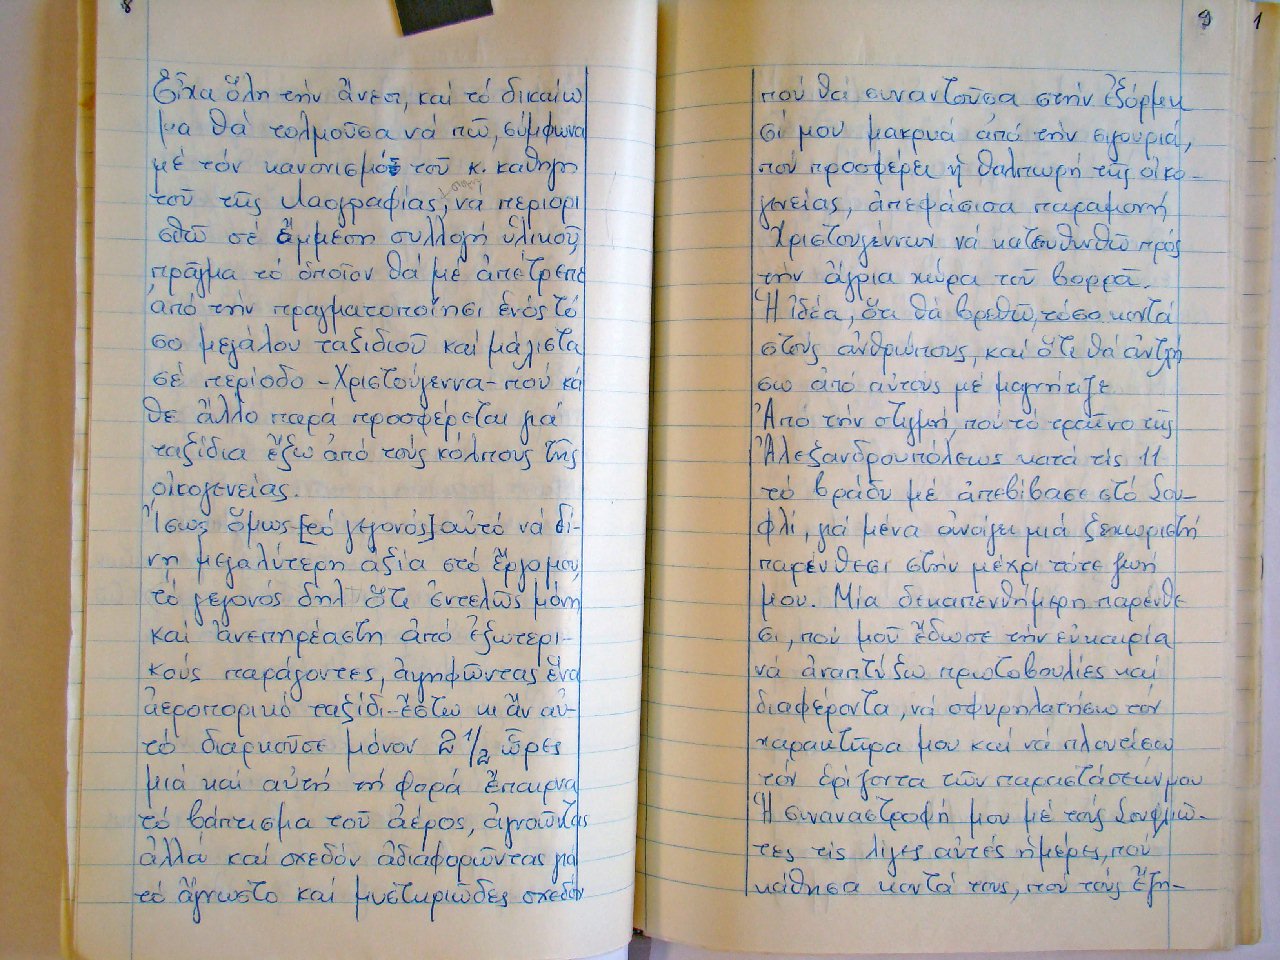 8
Εἶχα ὅλη τήν ἄνεσι, καί τό δικαίω
μα θά τολμοῦσα νά πῶ, σύμφωνα
μέ τόν κανονισμό τοῦ κ. καθηγη
τοῦ τῆς Λαογραφίας, νά περιορι
σθῶ σέ ἔμμεση συλλογή ὑλικοῦ,
πρᾶγμα τό ὁποῖον θά μέ ἀπέτρεπε
ἀπό τήν πραγματοποίησι ἑνός τό
σο μεγάλου ταξιδιοῦ καί μάλιστα
σέ περίοδο - Χριστούγεννα - πού κά
θε ἄλλο παρά προσφέρεται γιά
ταξίδια ἔξω ἀπό τούς κόλπους τῆς
οἰκογενείας.
Ἴσως ὅμως [τό γεγονός] αὐτό νά δί-
νη μεγαλύτερη ἀξία στό ἔργο μου,
τό γεγονός δηλ ὅτι ἐντελῶς μόνη
καί ἀνεπηρέαστη ἀπό ἐξωτερι-
κούς παράγοντες, ἀψηφῶντας ἕνα
ἀεροπορικό ταξίδι - ἔστω κι ἄν αὐ-
τό διαρκοῦσε μόνον 2 1/2 ὧρες
μιά καί αὐτή τή φορά ἔπαιρνα
τό βάπτισμα τοῦ ἀέρος, ἀγνοῶντας
ἀλλά καί σχεδόν ἀδιαφορῶντας γιά
τό ἄγνωστο καί μυστηριῶδες σχεδόν
9
πού θά συναντοῦσα στήν ἐξόρμη
σί μου μακρυά ἀπό τήν σιγουριά,
πού προσφέρει ἡ θαλπωρή τῆς οἰκο-
γενείας, ἀπεφάσισα παραμονή
Χριστουγέννων νά κατευθυνθῶ πρός
τήν ἄγρια χώρα τοῦ βορρᾶ.
Ἡ ἰδέα, ὅτι θά βρεθῶ, τόσο κοντά
στούς ἀνθρώπους, καί ὅτι θά ἀντλή
σω ἀπό αὐτούς μέ μαγνήτιζε
Ἀπό τήν στιγμή, πού τό τραῖνο τῆς
Ἀλεξανδρουπόλεως κατά τίς 11
τό βράδυ μέ ἀπεβίβασε στό Σου-
φλί, γιά μένα ἀνοίγει μιά ξεχωριστή
παρένθεσι στήν μέχρι τότε ζωή
μου. Μία δεκαπενθήμερη παρένθε
σι, πού μοῦ ἔδωσε τήν εὐκαιρία
νά ἀναπτύξω πρωτοβουλίες καί
διαφέροντα, νά σφυρηλατήσω τόν
χαρακτῆρα μου καί νά πλουτίσω
τόν ὁρίζοντα τῶν παραστάσεών μου
Ἡ συναναστροφή μου μέ τούς Σουφλιῶ-
τες τίς λίγες αὐτές ἡμέρες, πού
κάθησα κοντά τους, πού τούς ἔζη-
1